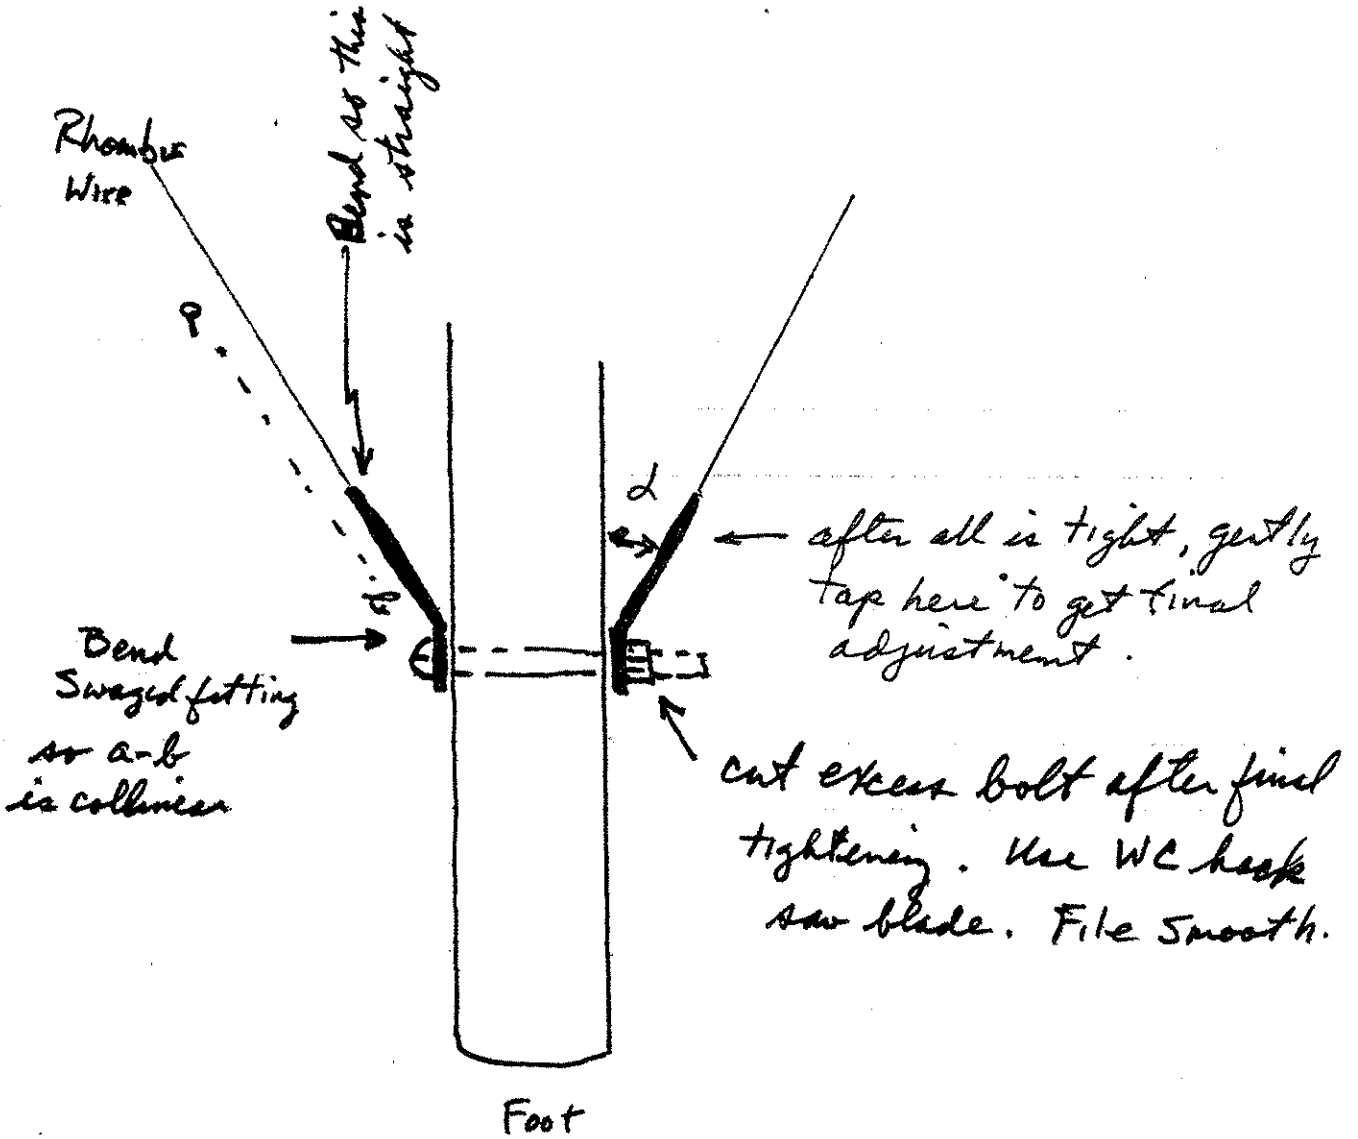 Bend so this
is straight
Rhombus
Wire
a
b
d
after all is tight, gently
tap here to get final
adjustment.
Bend
Swaged fitting
so a-b
is collinear
cut excess bolt after final
tightening. Use WC hack
saw blade. File smooth.
Foot